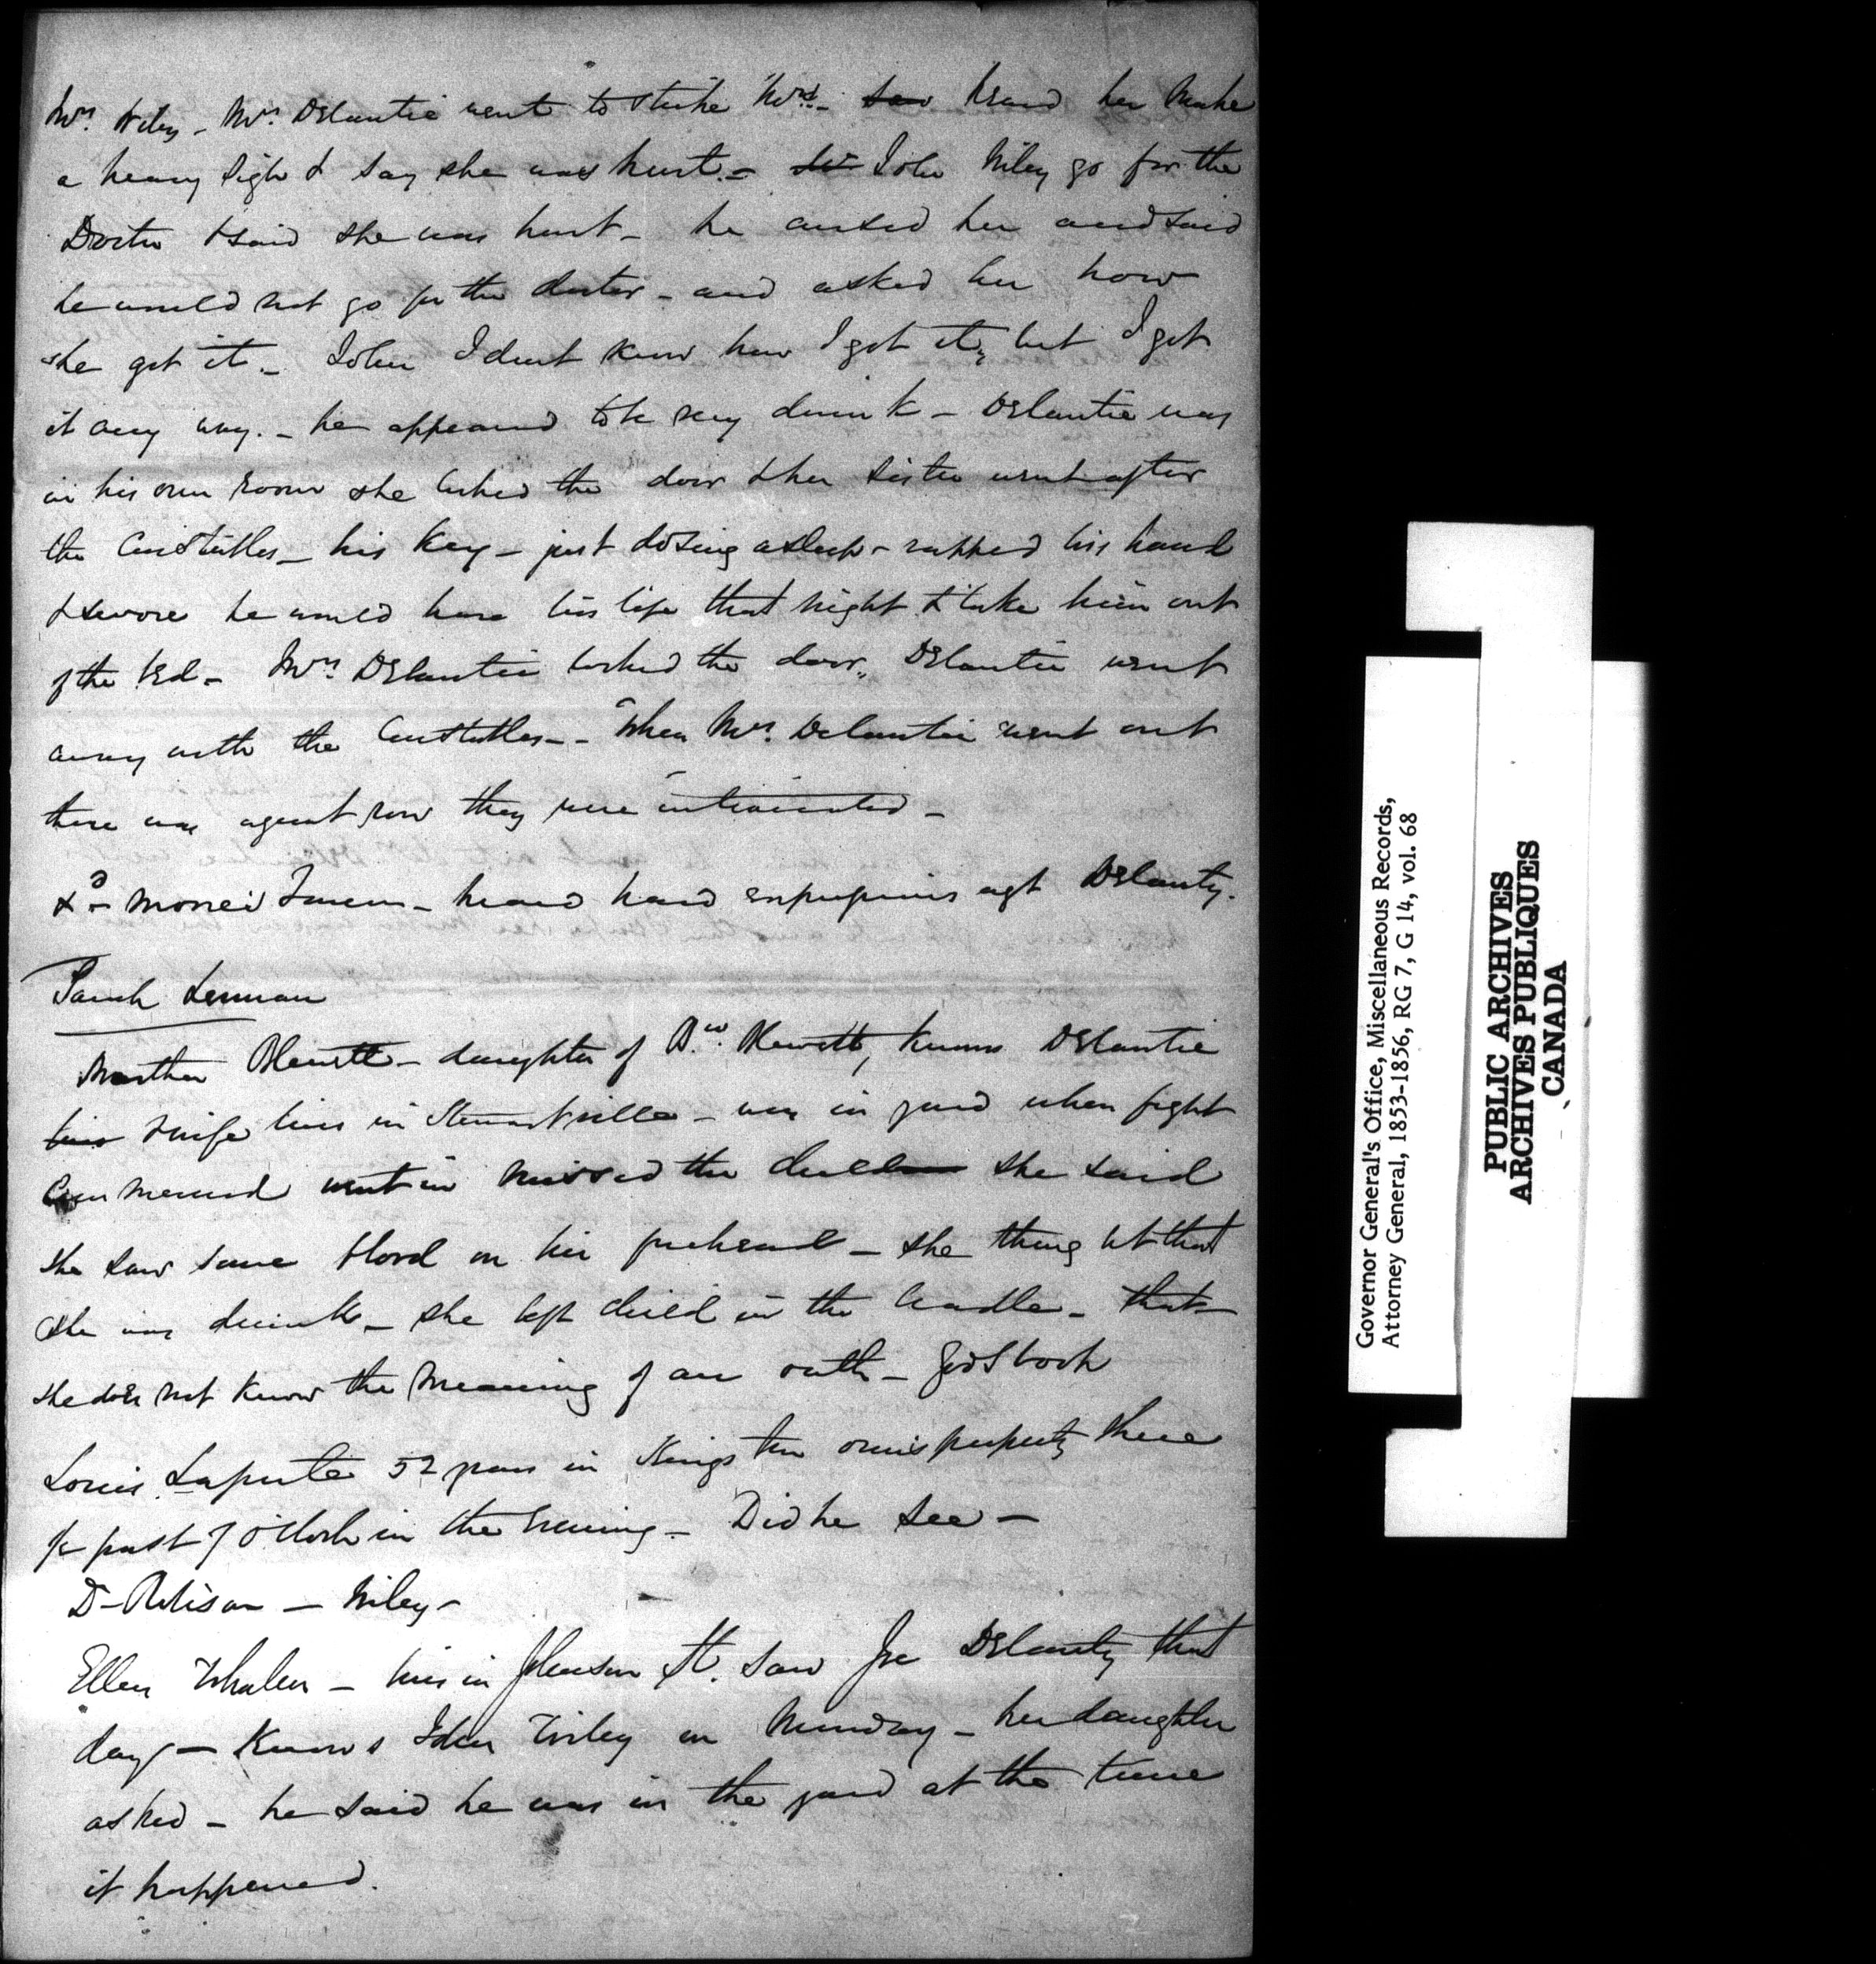 Mrs. Wiley - Mrs. Delantie went to strike Mrs. - saw heard her make
a heavy sigh & say she was hurt. - John Wiley go for the
Doctor & said she was hurt - he cursed her and said
he would not go for the doctor - and asked her how
she got it - John I dont know how I got it, but I got
it any way. - he appeared to be very drunk - Delantie was
in his own room she locked the door & her sister went after
the Constables - his Key - just dosing asleep - rapped his hand
& swore he would have his life that night & take him out
of the bed - Mrs. Delantie locked the door, Delantie went
away with the Constables - - When Mrs. Delantie went out
there was a great row they were intoxicated -
heard hard expressions agt Delanty.
Sarah Lennan
Martha Blewett - daughter of Wm. Blewett, knows Delantie
his & wife lives in Stewartville - was in yard when fight
Commenced went in missed the child she said
she saw some blood on her forehead - she thought that
she was drunk - she left child in the Cradle - that
she does not know the meaning of an oath - Gods book
Louis Laporte 52 years in Kingston owns property there
1/2 past 7 oClock in the Evening - Did he see -
Dr - Robison - Wiley -
Ellen Whalen - lives in Johnson St. saw Joe Delanty that
day - Knows John Wiley on Monday - her daughter
asked - he said he was in the yard at the time
it happened.
Governor General's Office, Miscellaneous Records,
Attorney General, 1853-1856, RG 7, G 14, vol. 68
PUBLIC ARCHIVES
ARCHIVES PUBLIQUES
CANADA